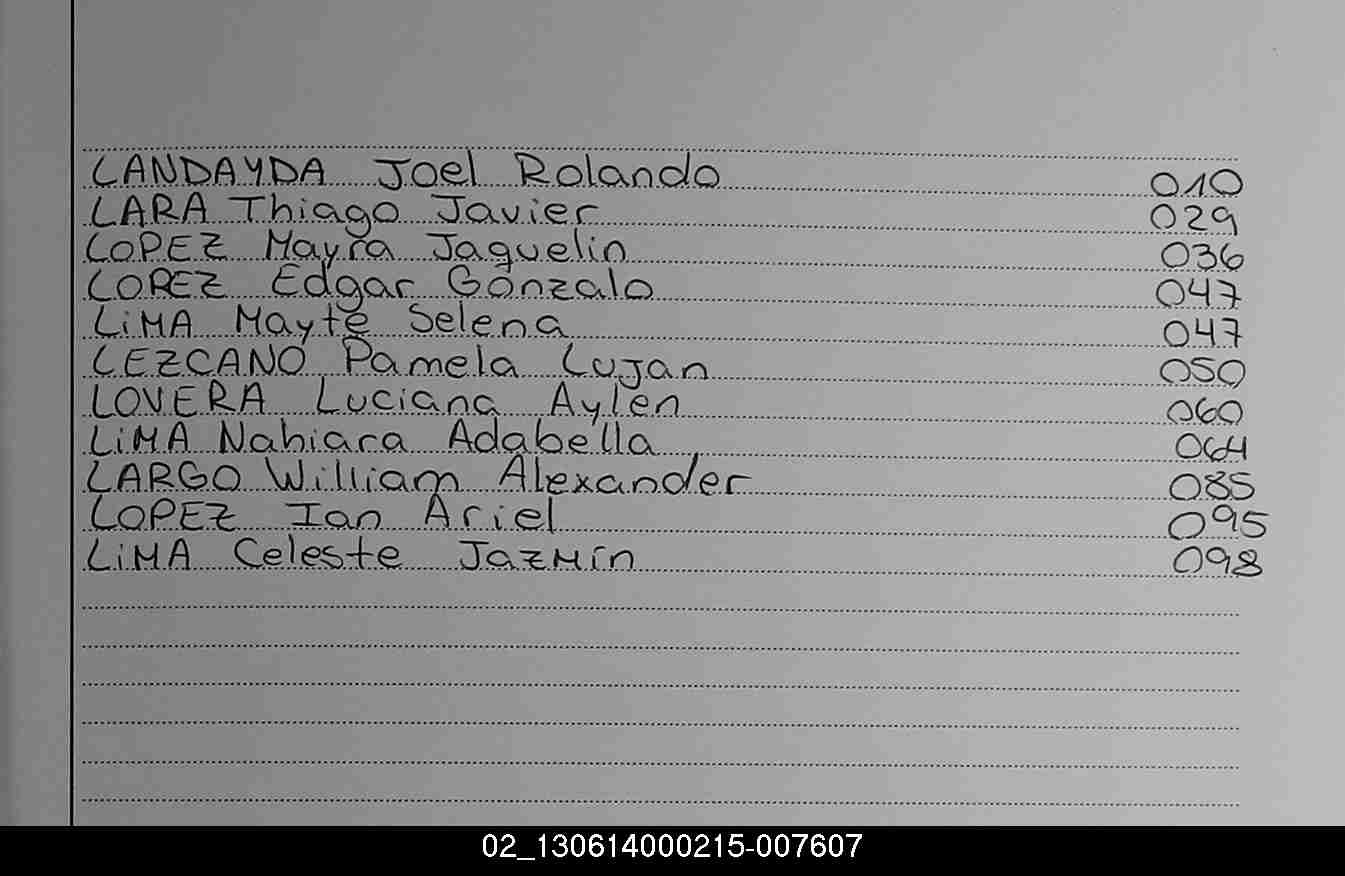 LANDAYDA Joel Rolando 010
LARA Thiago Javier 029
LOPEZ Mayra Jaquelin 036
LOPEZ Edgar Gonzalo 047
LiMA Mayte Selena 047
LEZCANO Pamela Lujan 050
LOVERA Luciana Aylen 060
LiMA Nahiara Adabella 064
LARGO William Alexander 085
LOPEZ Ian Ariel 095
LiMA Celeste Jazmín 098
02_130614000215-007607